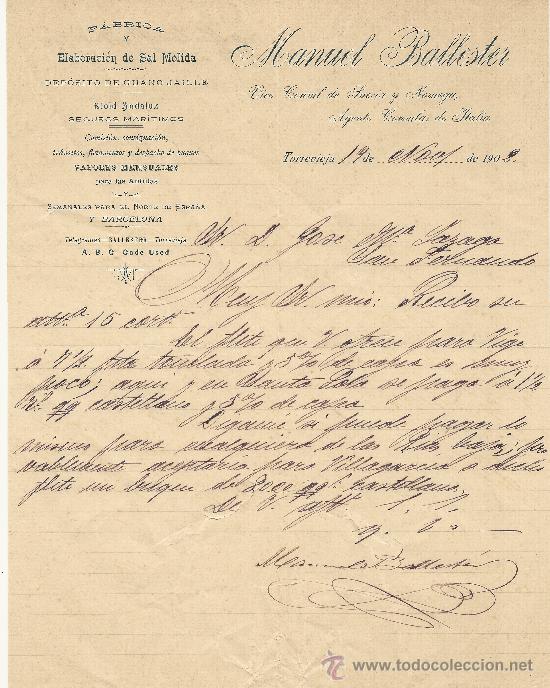 FÁBRICA
Y
Elaboración de Sal Molida
DEPÓSITO DE GUANO
Lloid Andaluz
SEGUROS MARÍTIMOS
Comisión, consignación,
fletamentos y despacho de buques
VAPORES MENSUALES
para las Antillas
Y
SEMANALES PARA EL NORTE DE ESPAÑA
Y BARCELONA
Telegramas BALLESTER Torrevieja
A. B. C. Code Used
Manuel Ballester
Vice Consul de Suecia y Noruega,
Agente Consular de Italia
Torrevieja 19 de Nov de 190
Sr D. Jose Ma Lazaga
San Fernando
Muy Sr mio: Recibo su
atta 15 cort.
El flete que V. para Vigo
á 7 1/2 tonelada y 5% de capa es
poco; aqui y en Santa Pola se paga á 1 1/2
castellano y 5% de capa
Digame si puede pagar lo
mismo para cualquiera de las Rias bajas;
aceptaria para Villagarcia á dicho
flete un de 2000 qq castellanos
De V.
Manuel Ballester
todocoleccion
www.todocoleccion.net